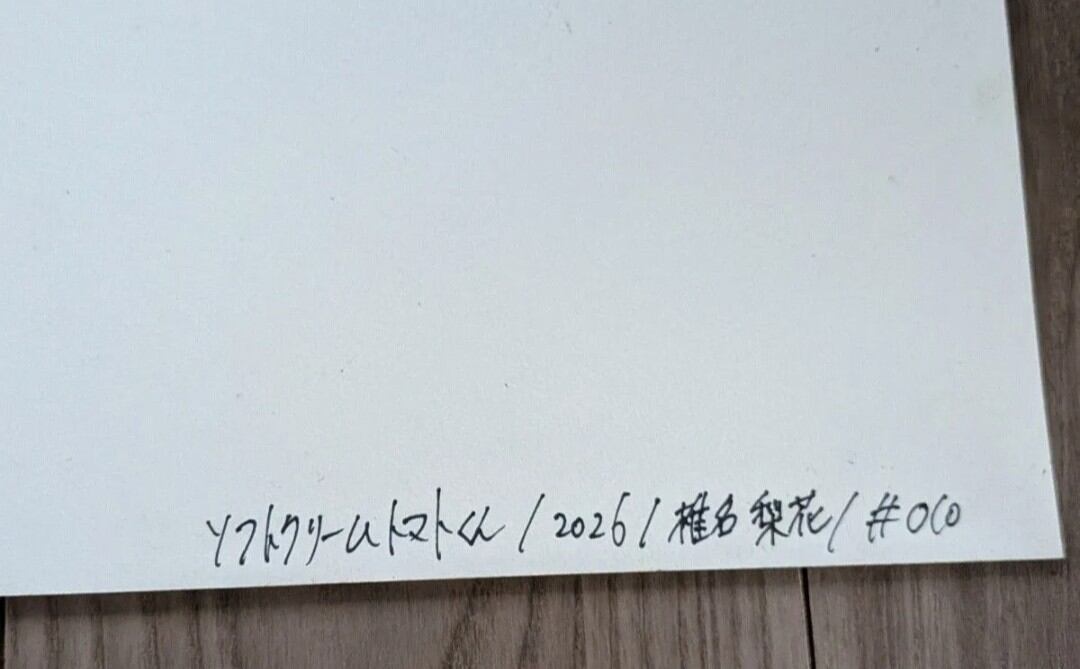 ソフトクリームトマトくん / 2026 / 椎名 梨花 / #OCO